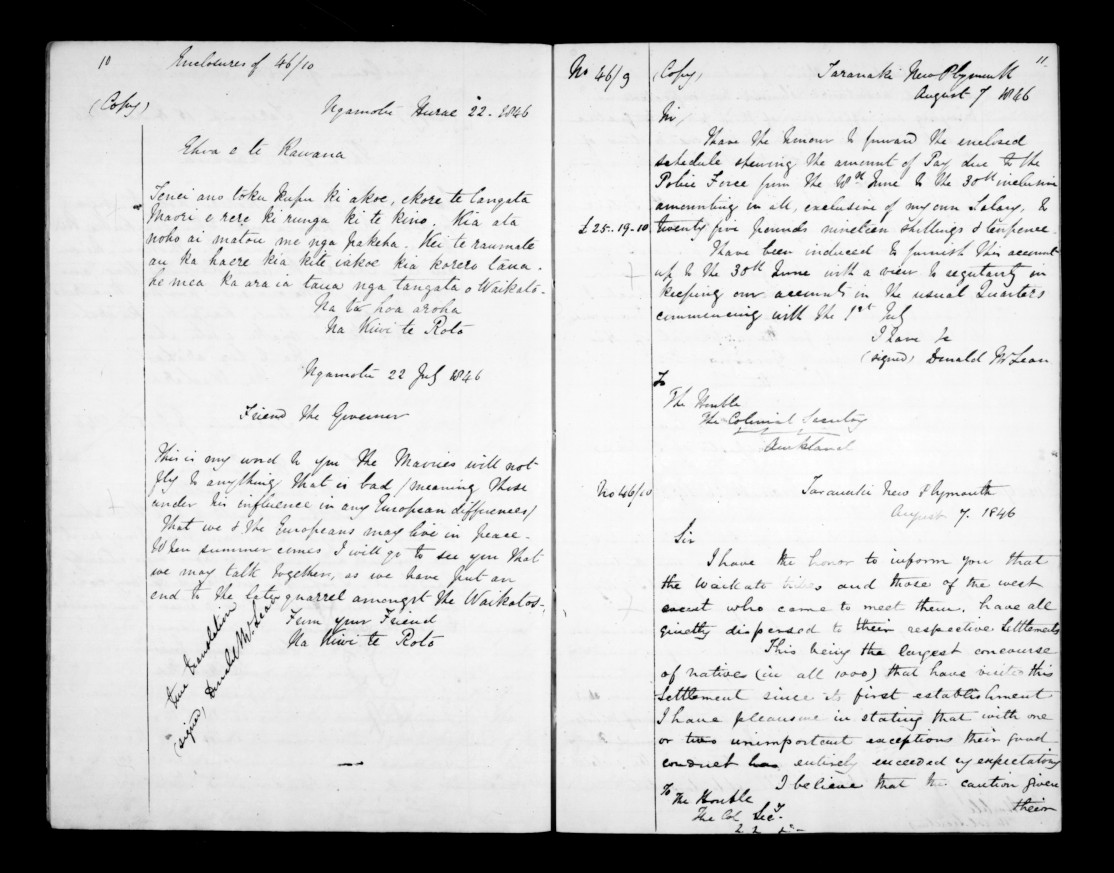 10
Enclosures of 46/10
(Copy)
Ngamotu Hurae 22. 1846
Ehoa e te Kawana
Tenei ano toku kupu ki akoe, ekore te tangata
Maori e rere ki runga ki te kino. Kia ata
noho ai matou me nga pakeha. Kei te raumate
au ka haere kia kite iakoe kia korero taua.
he mea ka ara ia taua nga tangata o Waikato.
Na to hoa aroha
Na Kiwi te Roto
Ngamotu 22 July 1846
Friend the Governor
This is my word to you the Maories will not
fly to anything that is bad (meaning those
under his influence in any European differences)
That we & the Europeans may live in peace.
When summer comes I will go to see you that
we may talk together, as we have put an
end to the late quarrel amongst the Waikatos.
From your Friend
Na Kiwi te Roto
true translation
(signed, Donald McLean
11
No 46/9
(Copy)
Taranaki New Plymouth
August 7 1846
Sir,
I have the honour to forward the enclosed
schedule shewing the amount of Pay due to the
Police Force from the 18th June to the 30th inclusive
amounting in all, exclusive of my own Salary, to
£25.-19-10 twenty five pounds nineteen shillings & tenpence.
I have been induced to furnish this account
up to the 30th June with a view to regularity in
keeping our accounts in the usual Quarters
commencing with the 1st July
I have &c
(signed) Donald McLean
To
The Honble
The Colonial Secretary
Auckland
No 46/10
Taranaki New Plymouth
August 7. 1846
Sir
I have the honor to inform you that
the Waikato tribes and those of the west
coast who came to meet them, have all
quietly dispersed to their respective Settlements
This being the largest concourse
of natives (in all 1000) that have visited this
Settlement since its first establishment
I have pleasure in stating that with one
or two unimportant exceptions their good
conduct has entirely exceeded my expectations
I believe that the caution given
their
To The Honble
The Col Secy.